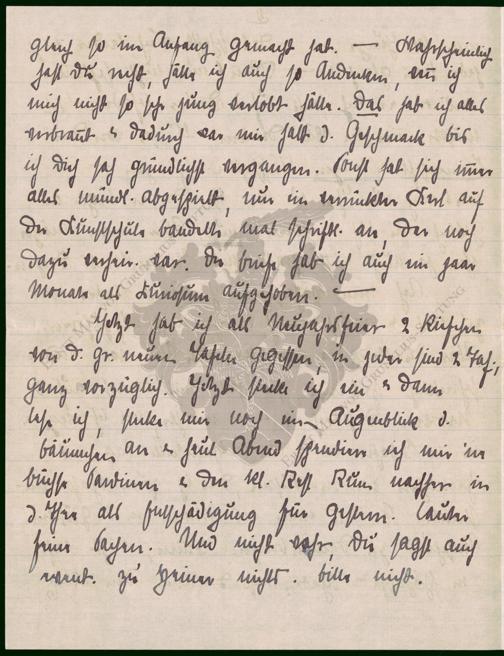 gleich so im Anfang gemacht hat. — Wahrscheinlich
hast Du recht, hätte ich auch so Andenken, wen̄ ich
mich nicht so sehr jung verlobt hätte. Das hab ich alles
verbran̄t & dadurch war mir halt d. Geschmack bis
ich Dich sah gründlichst vergangen. Sonst hat sich im̄er
alles mündl. abgespielt, nur ein verrückter Kerl auf
der Kunstschule bandelte mal schriftl. an, der noch
dazu verheir. war. Die briefe hab ich auch ein paar
Monate als Kuriosum aufgehoben. —
Jetzt hab ich als Neujahrsfeier 2 Kistchen
von d. gr. neuen Tafeln gegessen, in jeder sind 2
ganz vorzüglich. Jetzt stecke ich ein & dann
lese ich, stecke mir noch ein Augenblick d.
bäumchen an & heut Abend spendiere ich mir 'ne
büchse Sardinen & den kl. Rest Rum nachher in
d. Thee als Entschädigung für Gestern. Lauter
feine Sachen. Und nicht wahr, Du sagst auch
event. zu Heiner nichts. bitte nicht.